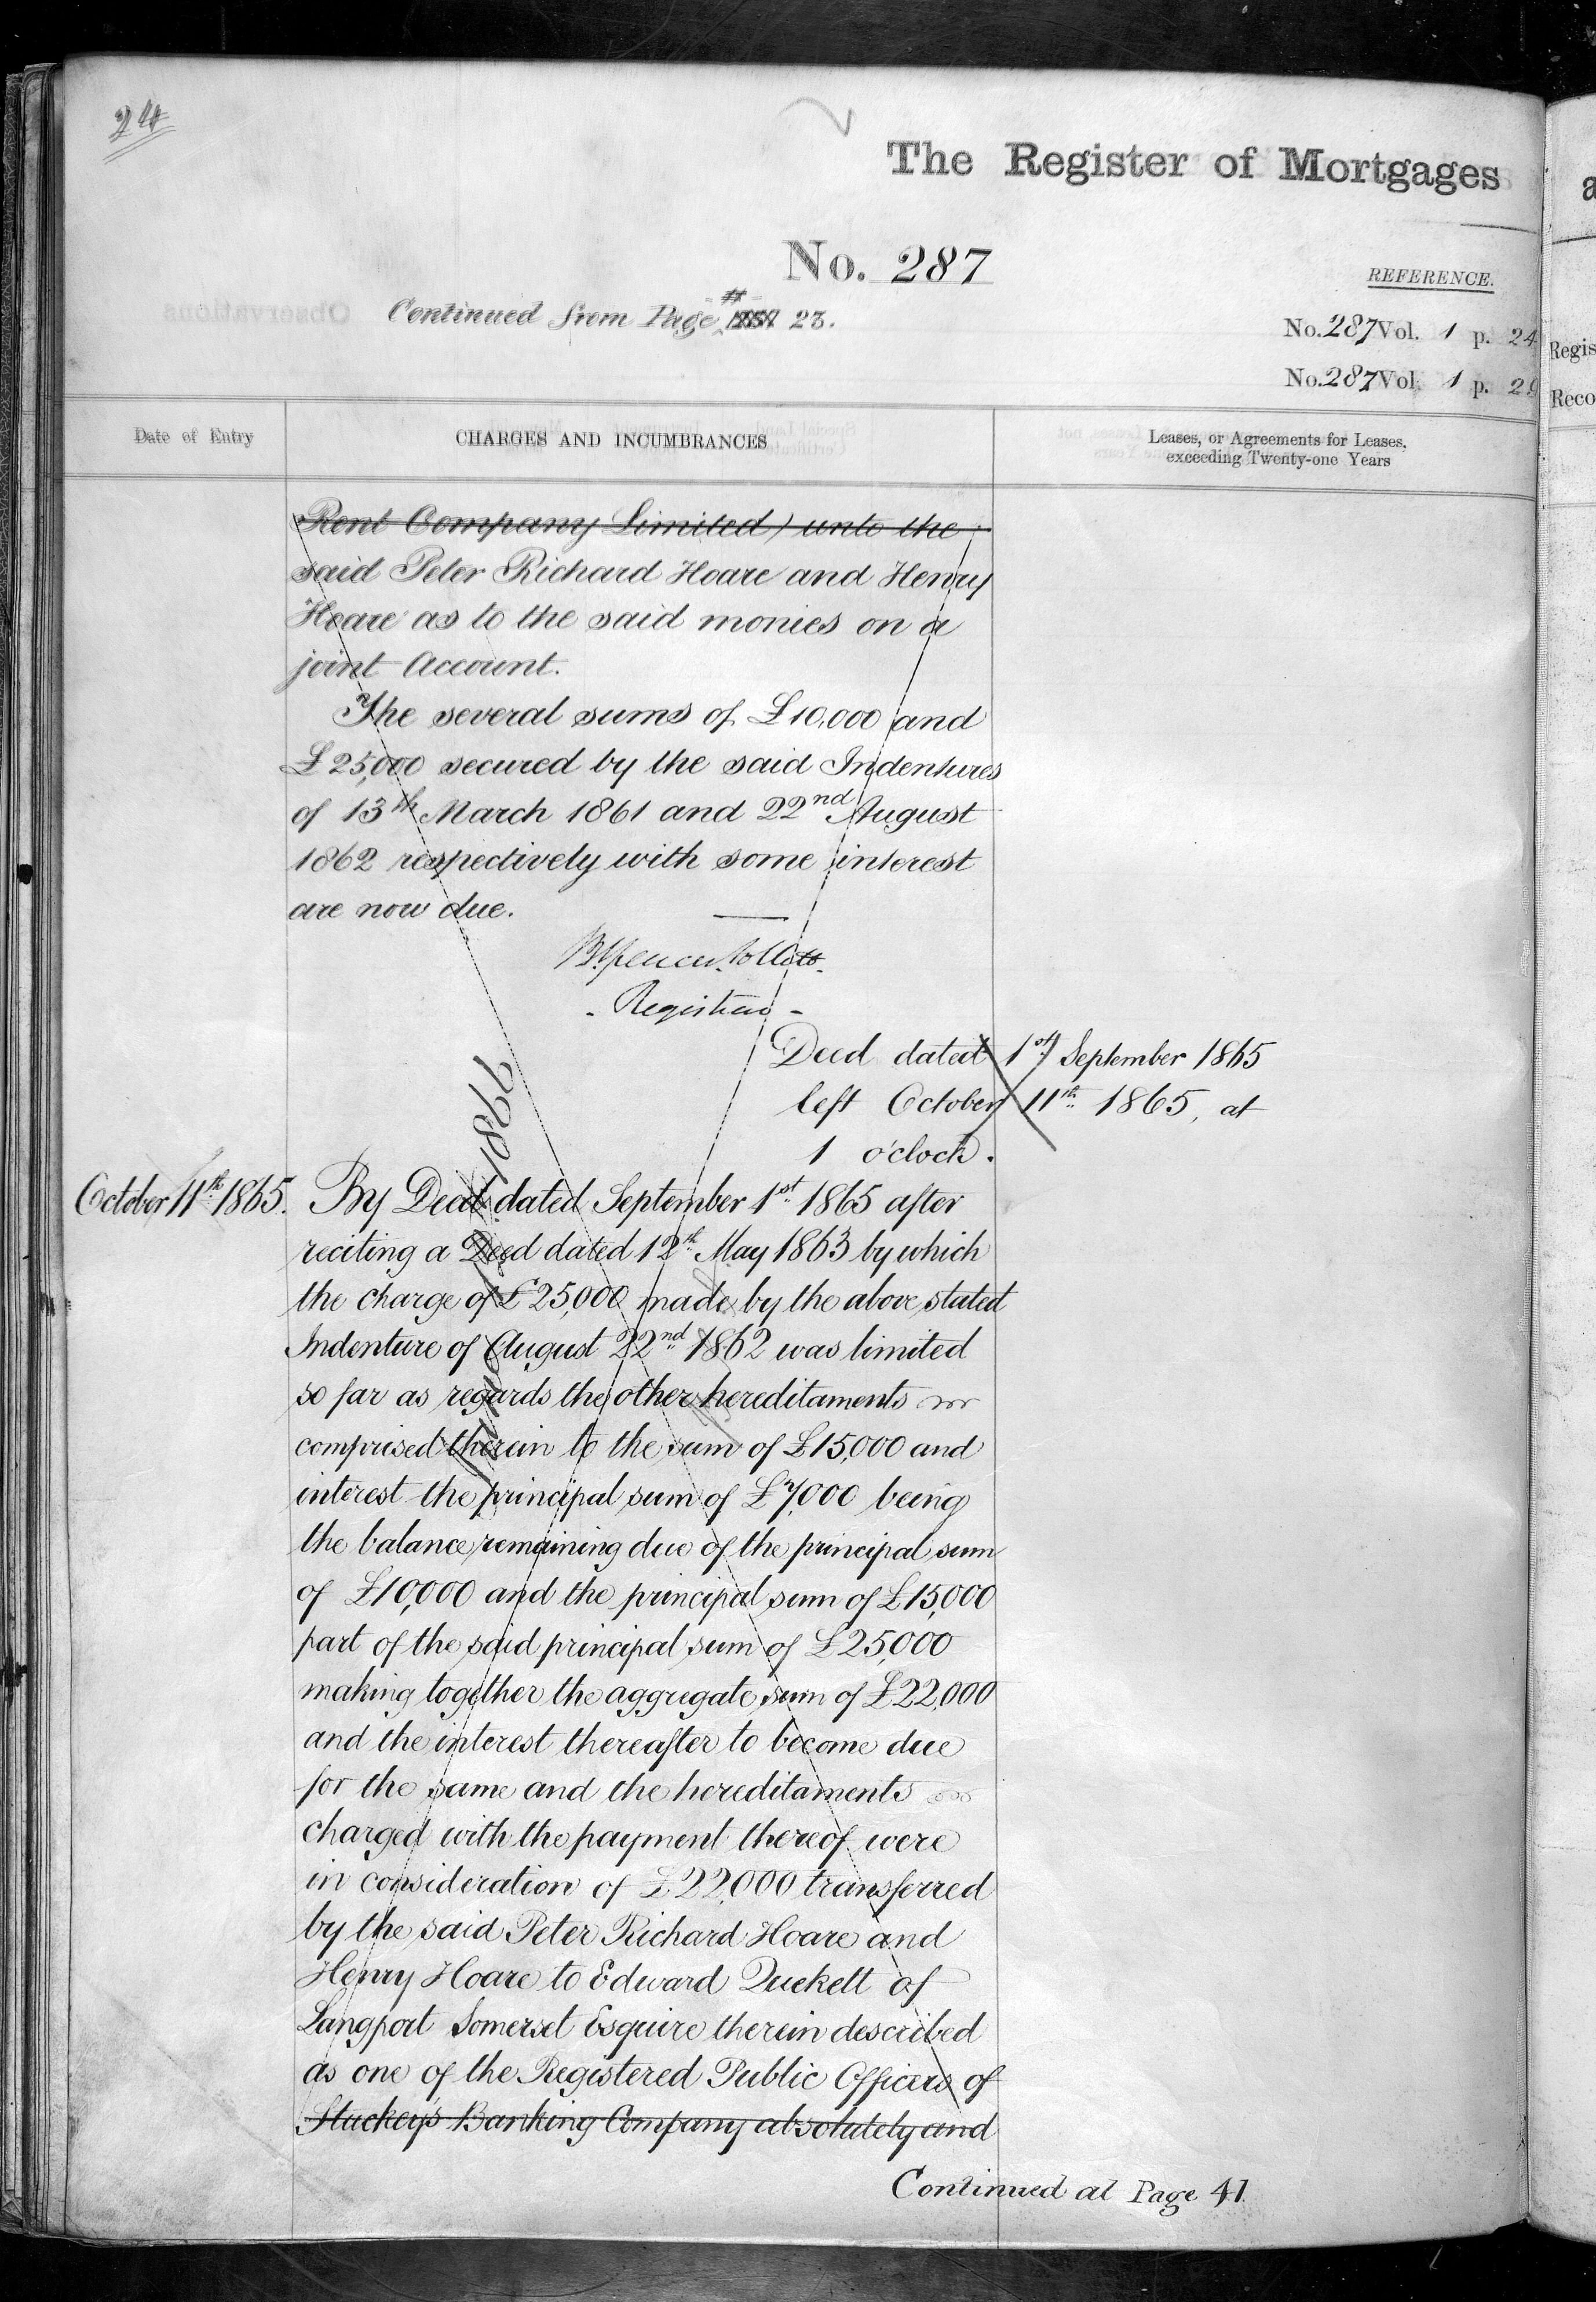 24
The Register of Mortgages
No. 287
REFERENCE.
Continued from Page 23.
No. 287 Vol. 1 p. 24
No. 287 Vol. 1 p. 29
Regis
Reco
Date of Entry
CHARGES AND INCUMBRANCES
Leases, or Agreements for Leases,
exceeding Twenty-one Years
Rent Company Limited) unto the
said Peter Richard Hoare and Henry
Hoare as to the said monies on a
joint Account.
The several sums of £10,000 and
£25,000 secured by the said Indentures
of 13th March 1861 and 22nd August
1862 respectively with some interest
are now due.
Registrar
Deed dated 1st September 1865
left October 11th 1865, at
1 o'clock.
October 11th 1865.
By Deed dated September 1st 1865 after
reciting a Deed dated 12th May 1863 by which
the charge of £25,000 made by the above stated
Indenture of August 22nd 1862 was limited
so far as regards the other hereditaments
comprised therein to the sum of £15,000 and
interest the principal sum of £7,000 being
the balance remaining due of the principal sum
of £10,000 and the principal sum of £15,000
part of the said principal sum of £25,000
making together the aggregate sum of £22,000
and the interest thereafter to become due
for the same and the hereditaments
charged with the payment thereof were
in consideration of £22,000 transferred
by the said Peter Richard Hoare and
Henry Hoare to Edward Quekett of
Langport Somerset Esquire therein described
as one of the Registered Public Officers of
Stuckey's Banking Company absolutely and
Continued at Page 41.